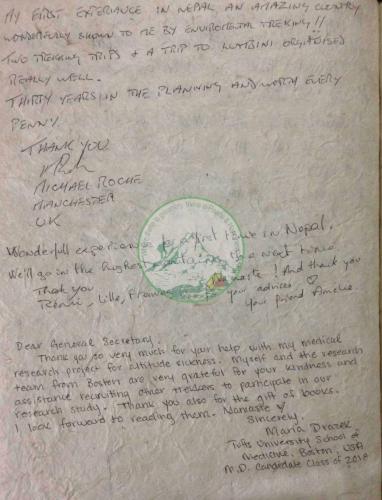 MY FIRST EXPERIANCE IN NEPAL AN AMAZING COUNTRY
WONDERFULLY SHOWN TO ME BY ENVIROMENTAL TREKING!!
TWO TREKKING TRIPS + A TRIP TO LUMBINI ORGANISED
REALLY WELL.
THIRTY YEARS IN THE PLANNING AND WORTH EVERY
PENNY.
THANK YOU
MICHAEL ROCHE
MANCHESTER
UK
Wonderfull experience for a first time in Nepal.
We'll go in the highest mountains next time.
Thank you Namaste! And thank you
Rémi, Lille, France for your advices
Your friend Amélie.
Dear General Secretary,
Thank you so very much for your help with my medical
research project for altitude sickness. Myself and the research
team from Boston are very grateful for your kindness and
assistance recruiting other trekkers to participate in our
research study. Thank you also for the gift of books.
I look forward to reading them. Namaste
Sincerely,
Maria Drozek
Tufts University School of
Medicine, Boston, USA
M.D. Candidate Class of 2018